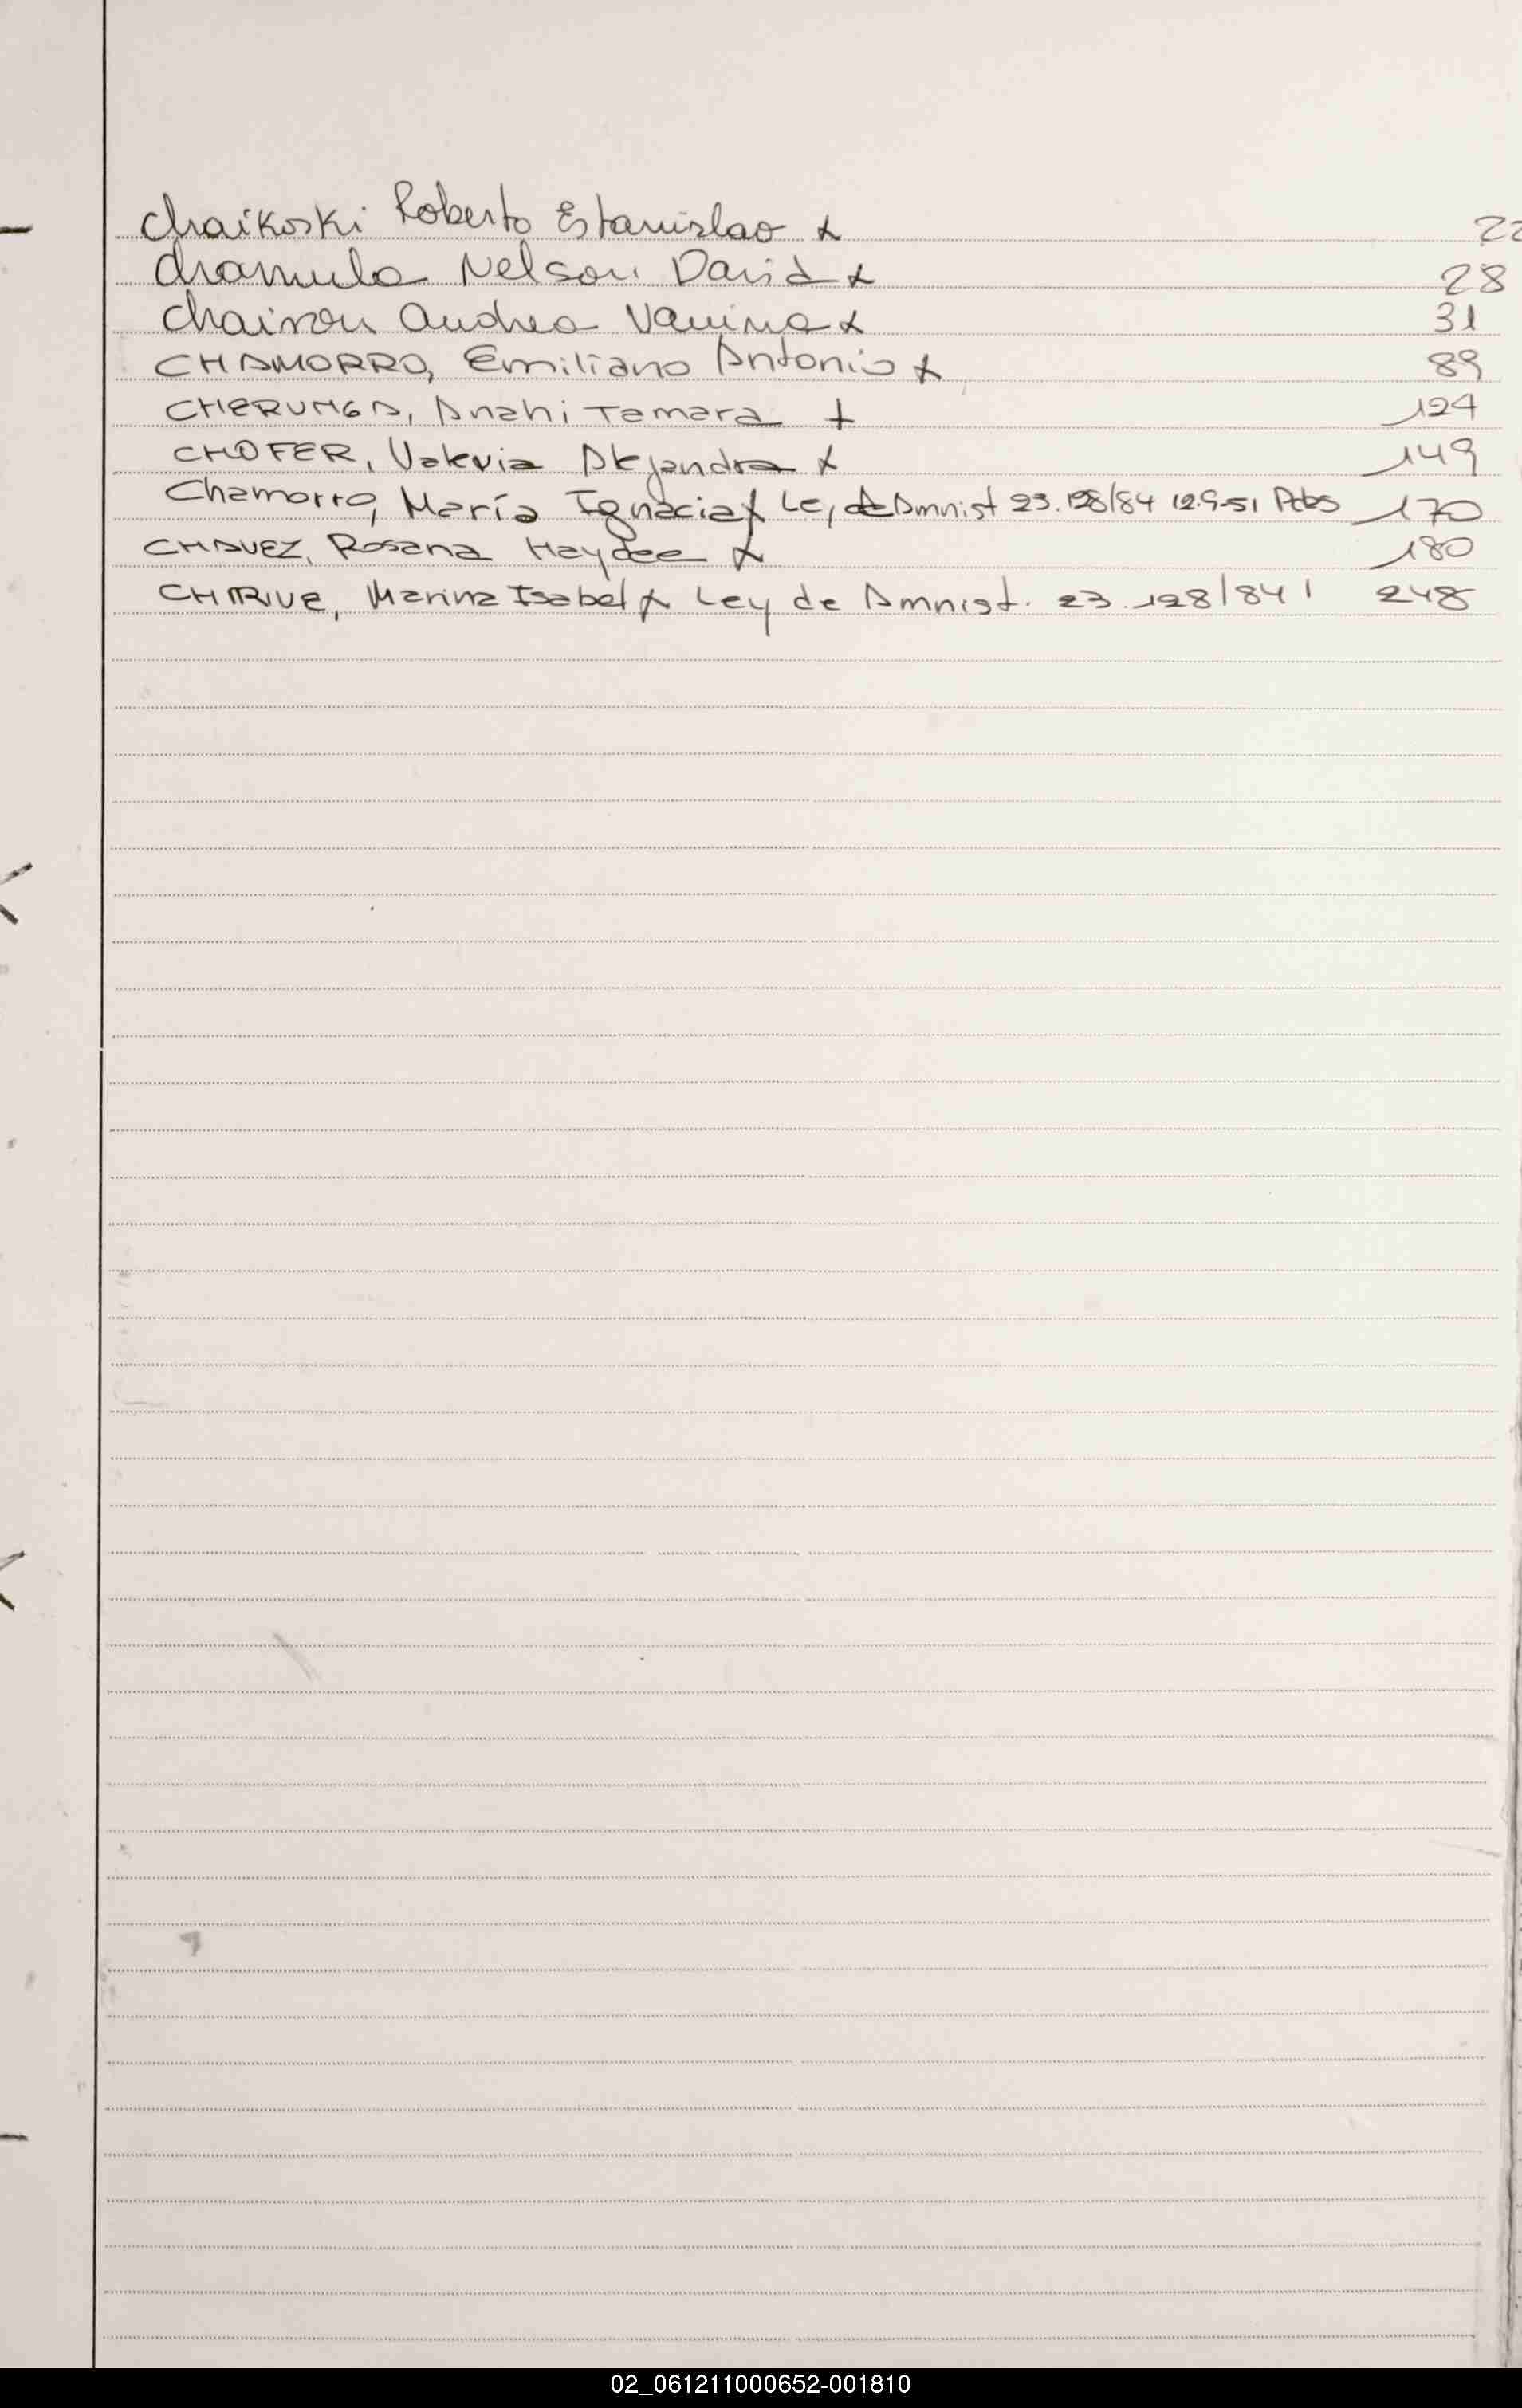 Chaikoski Roberto Estanislao x 22
Chamula Nelson David x 28
Chairou Andrea Vanina x 31
CHAMORRO, Emiliano Antonio x 89
CHERUNGA, Anahi Tamara + 124
CHOFER, Valeria Alejandra x 149
Chamorro, María Ignacia x Ley de Amnist 23.128/84 12.9-51 170
CHAVEZ, Rosana Haydee x 180
Marina Isabel x Ley de Amnist. 23.128/84 248
02_061211000652-001810